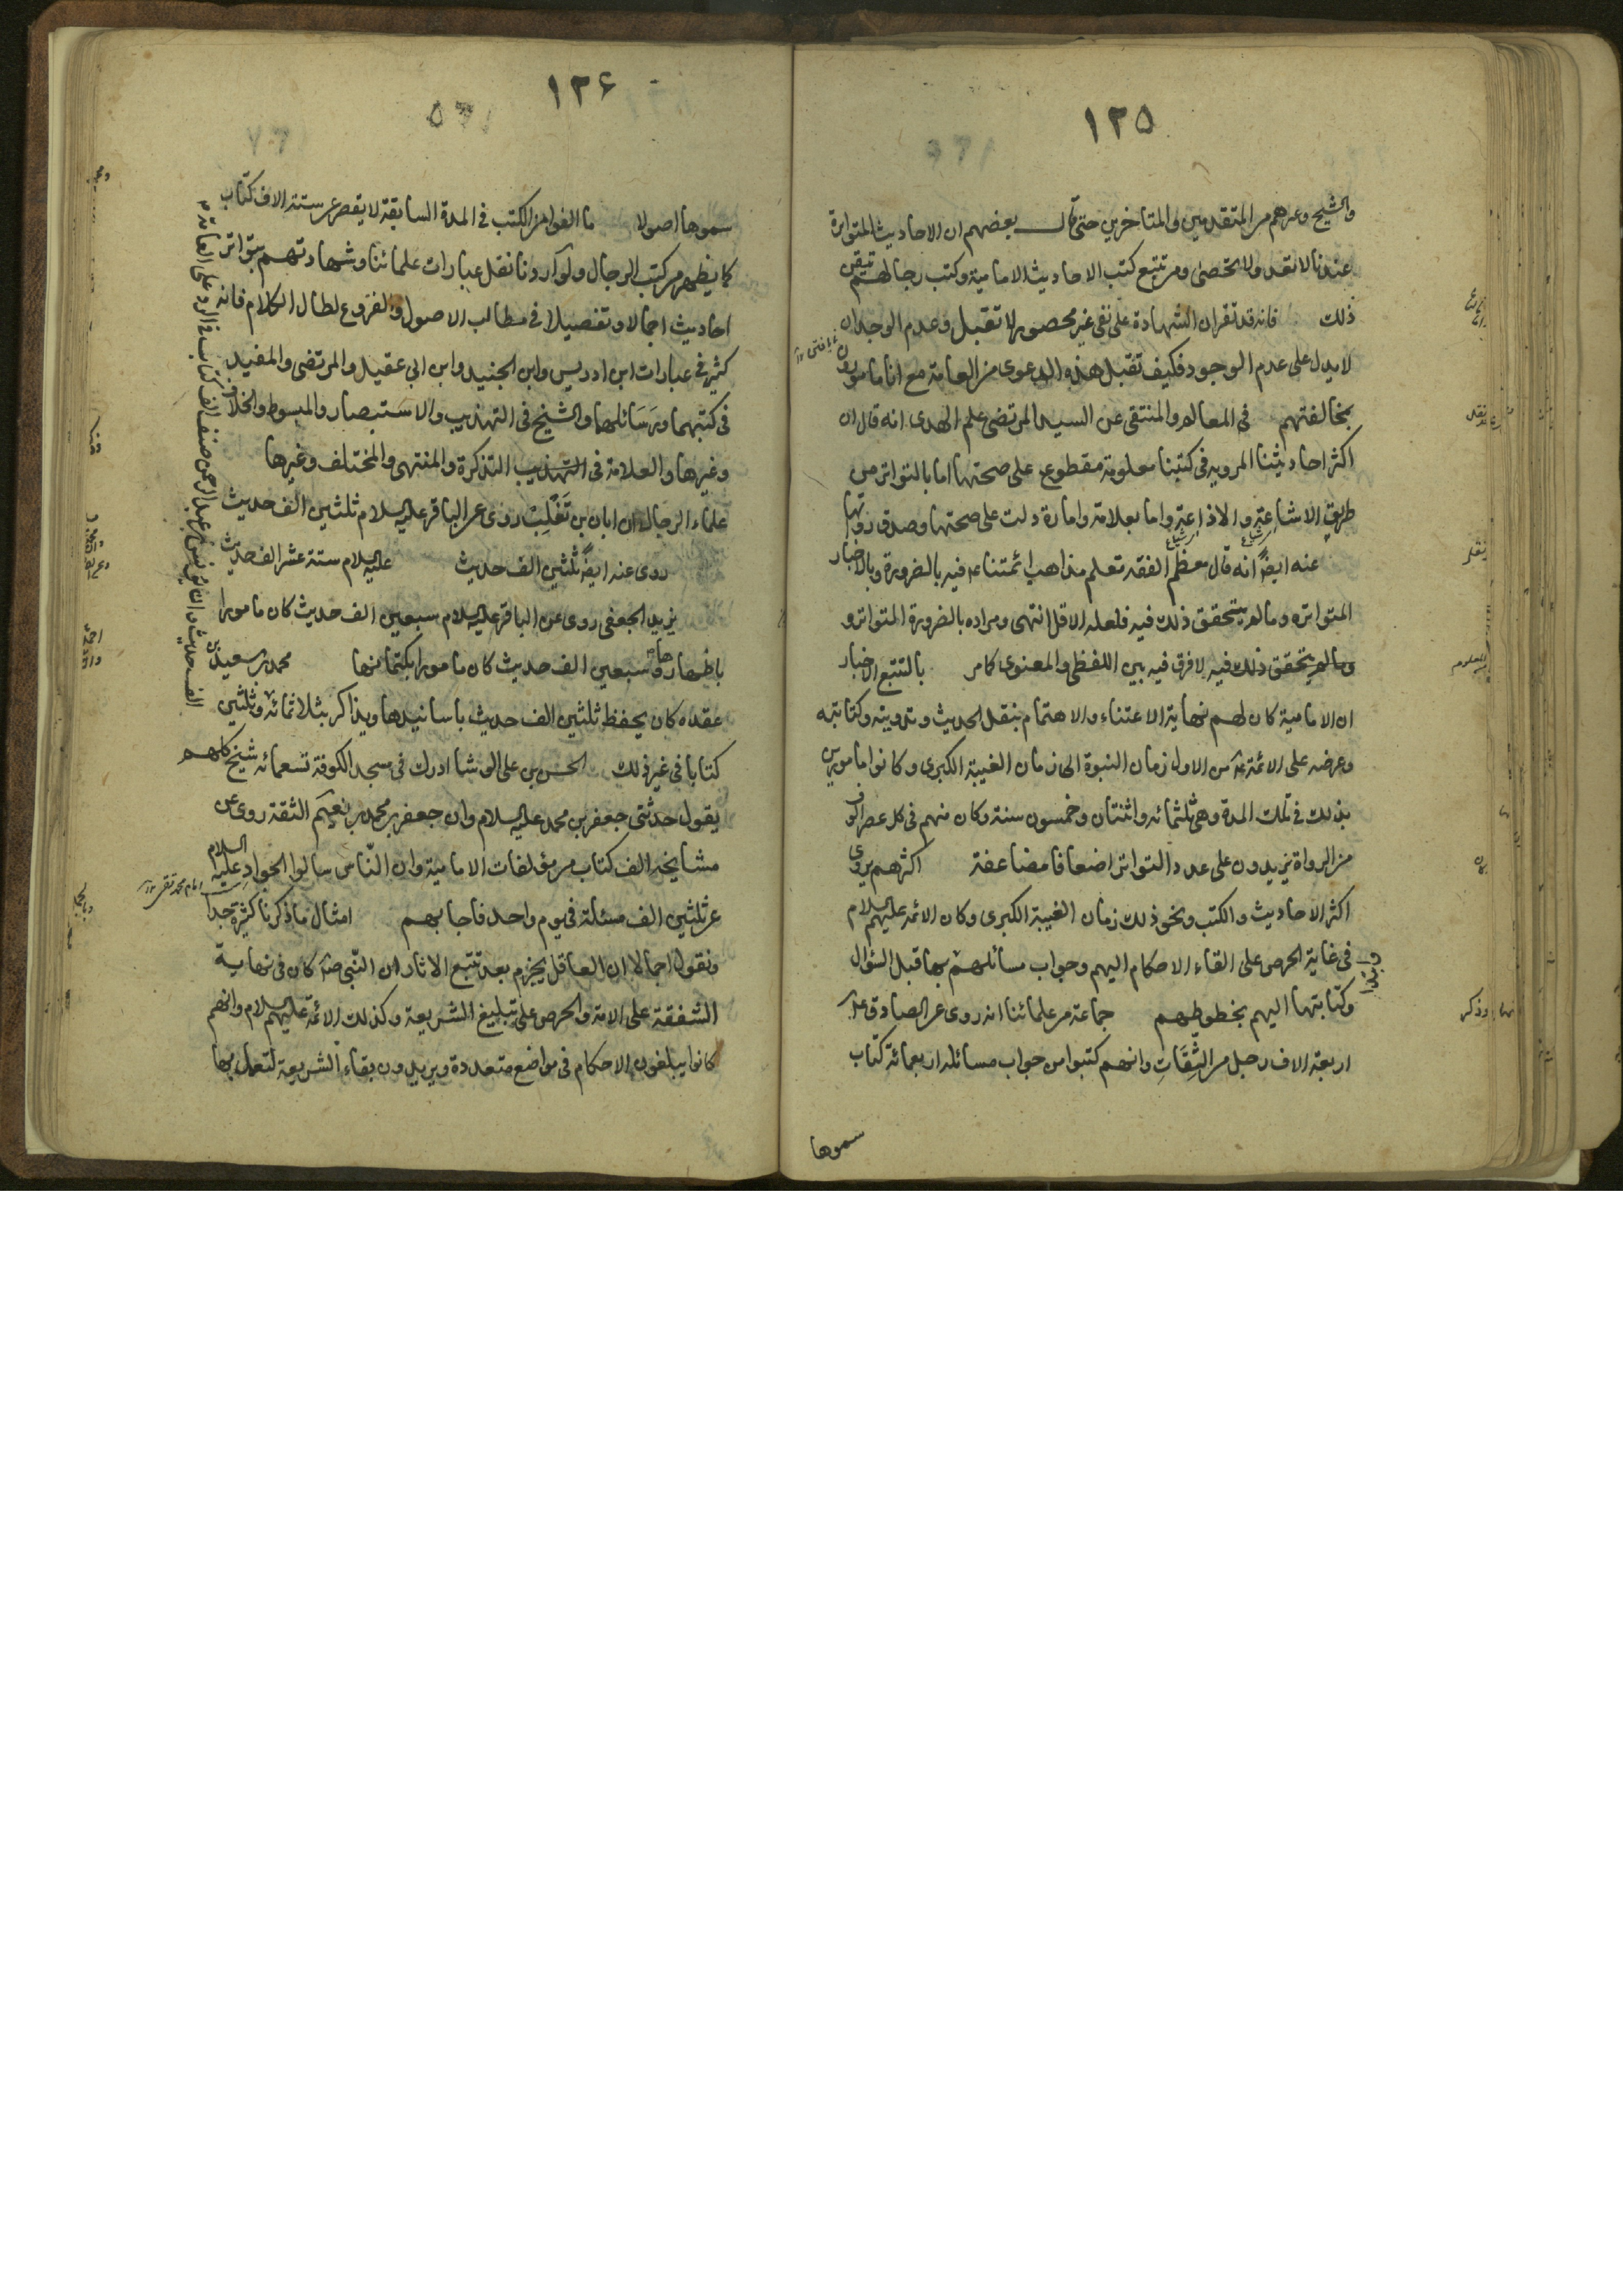 ١٢٥
والشيخ وغيرهم من المتقدمين والمتاخرين حتى قال بعضهم ان الاحاديث المتواترة
عندنا لا تعد ولا تحصى ومن تتبع كتب الاحاديث الامامية وكتب رجالهم تيقن
ذلك فانه قد تقرر ان الشهادة على نفى غير محصور لا تقبل وعدم الوجدان
لا يدل على عدم الوجود فكيف تقبل هذه الدعوى من العامة مع انا مامورون
بمخالفتهم فى المعالم والمنتقى عن السيد المرتضى علم الهدى انه قال ان
اكثر احاديثنا المروية فى كتبنا معلومة مقطوع على صحتها اما بالتواتر من
طريق الاشاعة والاذاعة واما بعلامة وامارة دلت على صحتها وصدق رواتها
عنه ايضا انه قال معظم الفقه تعلم مذاهب ائمتنا ع فيه بالضرورة وبالاخبار
المتواترة وما لم يتحقق ذلك فيه فلعله الاقل انتهى ومراده بالضرورة المتواتر و
وما لم يتحقق ذلك فيه لا فرق فيه بين اللفظى والمعنوى كامر بالتتبع الاخبار
ان الامامية كان لهم نهاية الاعتناء والاهتمام بنقل الحديث وتدوينه وكتابته
وعرضه على الائمة ع من الاول زمان النبوة الى زمان الغيبة الكبرى وكانوا مامورين
بذلك فى تلك المدة وهى ثلثمائه واثنتان وخمسون سنة وكان منهم فى كل عصر الوف
من الرواة يزيدون على عدد التواتر اضعافا مضاعفة اكثرهم يروى
اكثر الاحاديث والكتب ونحو ذلك زمان الغيبة الكبرى وكان الائمة عليهم السلام
فى غاية الحرص على القاء الاحكام اليهم وجواب مسائلهم بها قبل السؤال
وكتابتها اليهم بخطوطهم جماعة من علمائنا انه روى عن الصادق ع
اربعة الاف رجل من الثقات وانهم كتبوا من جواب مسائله اربعمائة كتاب
سموها
١٢۶
سموها اصولا ما الفوا من الكتب فى المدة السابقة لا يقصر عن ستة الاف كتاب
كما يظهر من كتب الرجال ولو اردنا نقل عبارات علمائنا وشهادتهم بتواتر
احاديث اجمالا وتفصيلا فى مطالب الاصول والفروع لطال الكلام فانه
كثير فى عبارات ابن ادريس وابن الجنيد وابن ابى عقيل والمرتضى والمفيد
فى كتبهما ورسائلهما والشيخ فى التهذيب والاستبصار والمبسوط والخلاف
وغيرها والعلامة فى التهذيب التذكرة والمنتهى والمختلف وغيرها
علماء الرجال ان ابان بن تغلب روى عن الباقر عليه السلام ثلثين الف حديث
روى عنه ايضا ثلثين الف حديث عليه السلام ستة عشر الف حديث
يزيد الجعفى روى عن الباقر عليه السلام سبعين الف حديث كان مامورا
باظهارها وسبعين الف حديث كان مامورا بكتمانها محمد بن سعيد بن
عقده كان يحفظ ثلثين الف حديث باسانيدها ويذاكر بثلاثمائة وثلثين
كتابا فى غير ذلك الحسن بن على الوشا ادرك فى مسجد الكوفة تسعمائه شيخ كلهم
يقول حدثنى جعفر بن محمد عليه السلام وان جعفر بن محمد بن نعيم الثقة روى عن
مشايخه الف كتاب من مؤلفات الامامية وان الناس سالوا الجواد عليه السلام
امام محمد تقى
عن ثلثين الف مسئلة فى يوم واحد فاجابهم امثال ما ذكرنا كثيرة جدا
ونقول اجمالا ان العاقل يجزم بعد تتبع الاثار ان النبى ص كان فى نهاية
الشفقة على الامة والحرص على تبليغ الشريعة وكذلك الائمة عليهم السلام وانهم
كانوا يبلغون الاحكام فى مواضع متعددة ويريدون بقاء الشريعة لتعمل بها
الف حديث وان يونس بن عبد الرحمن صنف الف كتاب فى الرد على العامة